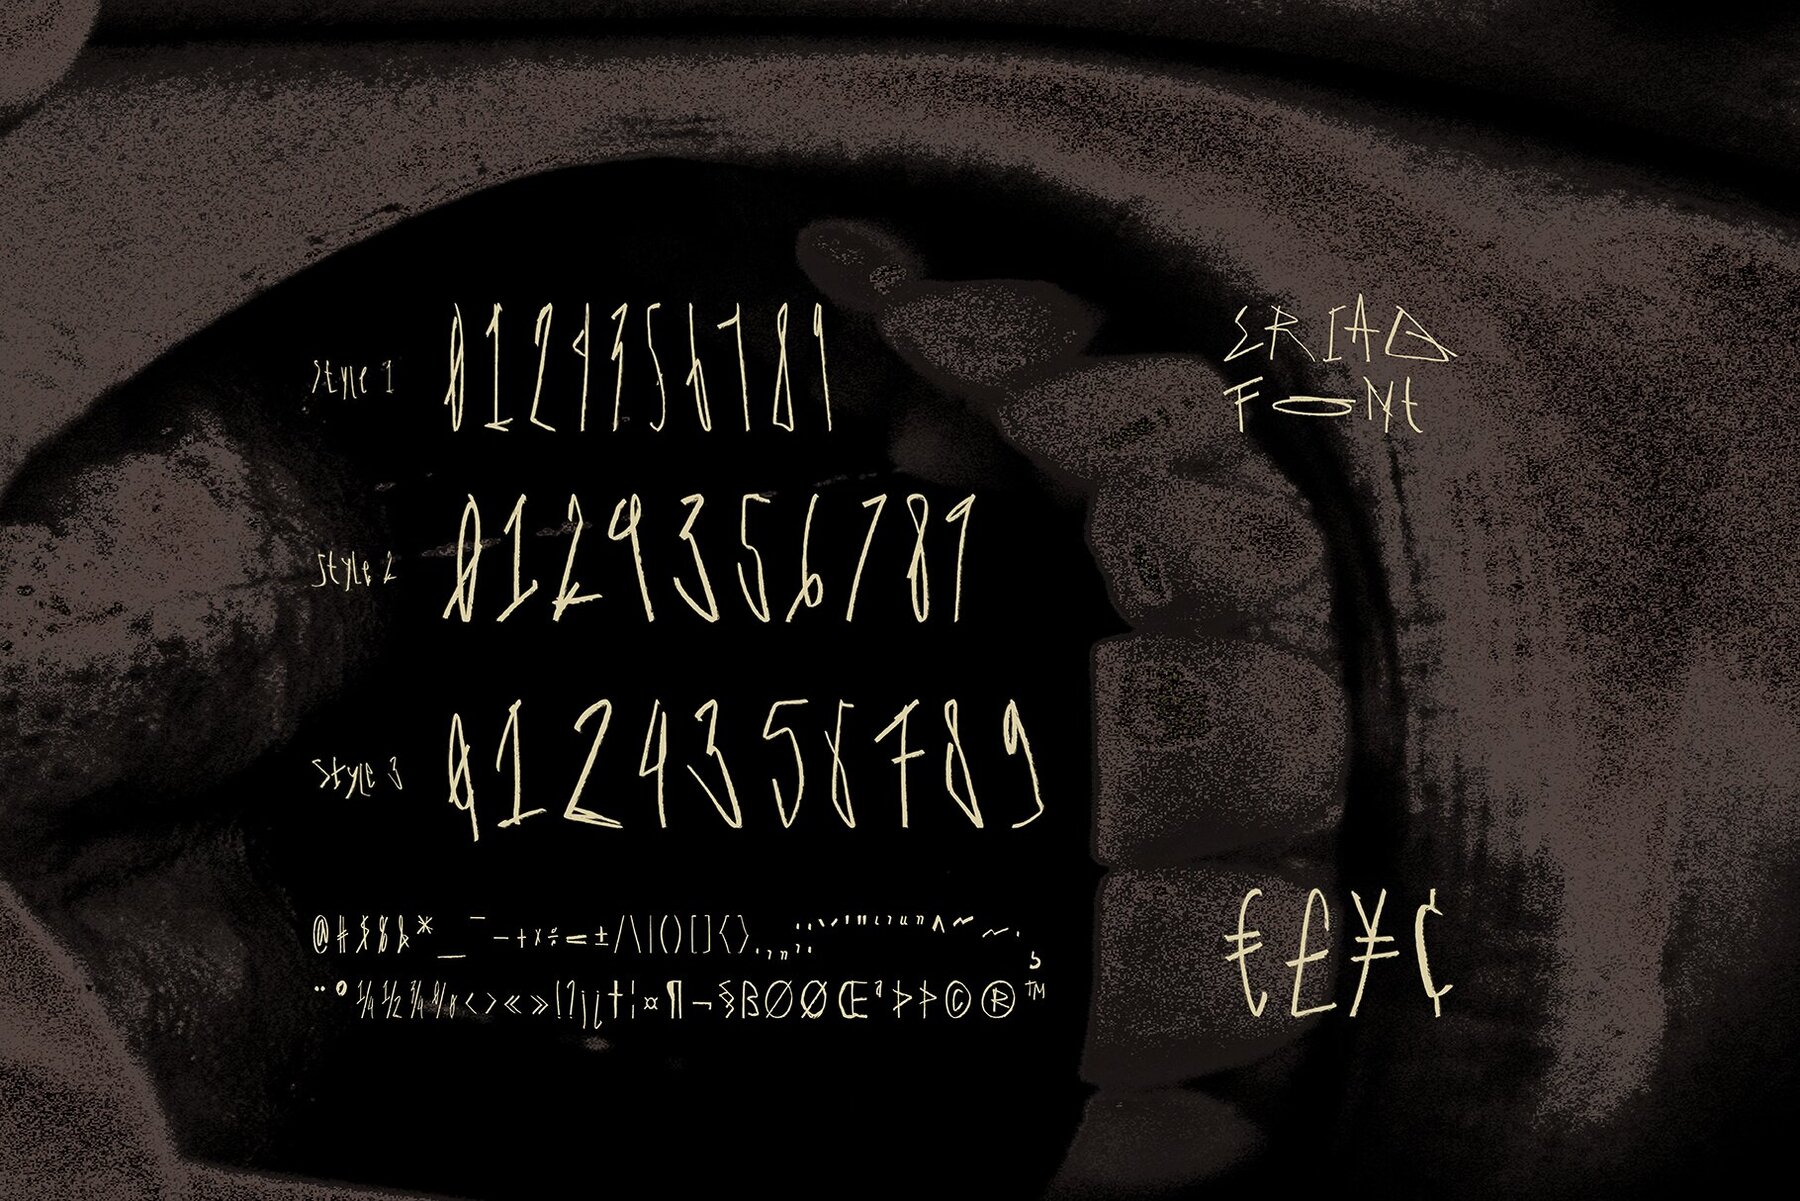 Style 1 0124356789
Style 2 0124356789
Style 3 0124356789
@#$%&*_¯−+×÷=±/\|()[]{}.,„;:
¨°¼½¾%‰<>«»!?¡¿†¦¤¶¬§ßØØŒªÞÞ©®™
ERIAD
FONt
€£¥¢